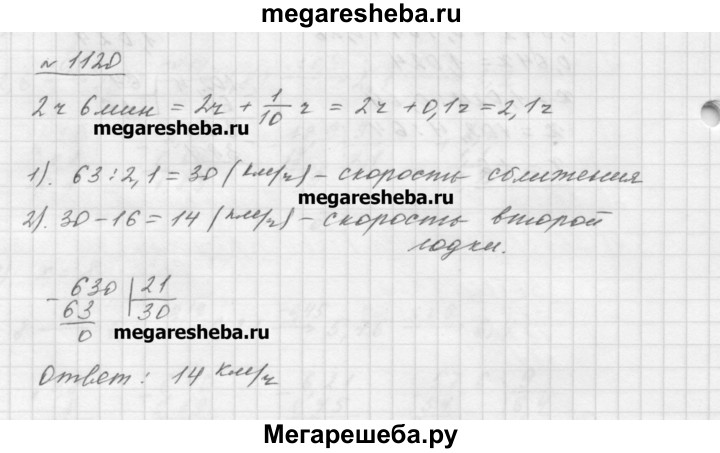 megaresheba.ru
№ 1120
2ч 6мин = 2ч + 1/10 ч = 2ч + 0,1ч = 2,1ч
megaresheba.ru
1). 63 : 2,1 = 30 (км/ч) - скорость сближения
megaresheba.ru
2). 30 - 16 = 14 (км/ч) - скорость второй
лодки.
- 630 | 21
63 | 30
0
megaresheba.ru
Ответ: 14 км/ч
Мегарешеба.ру